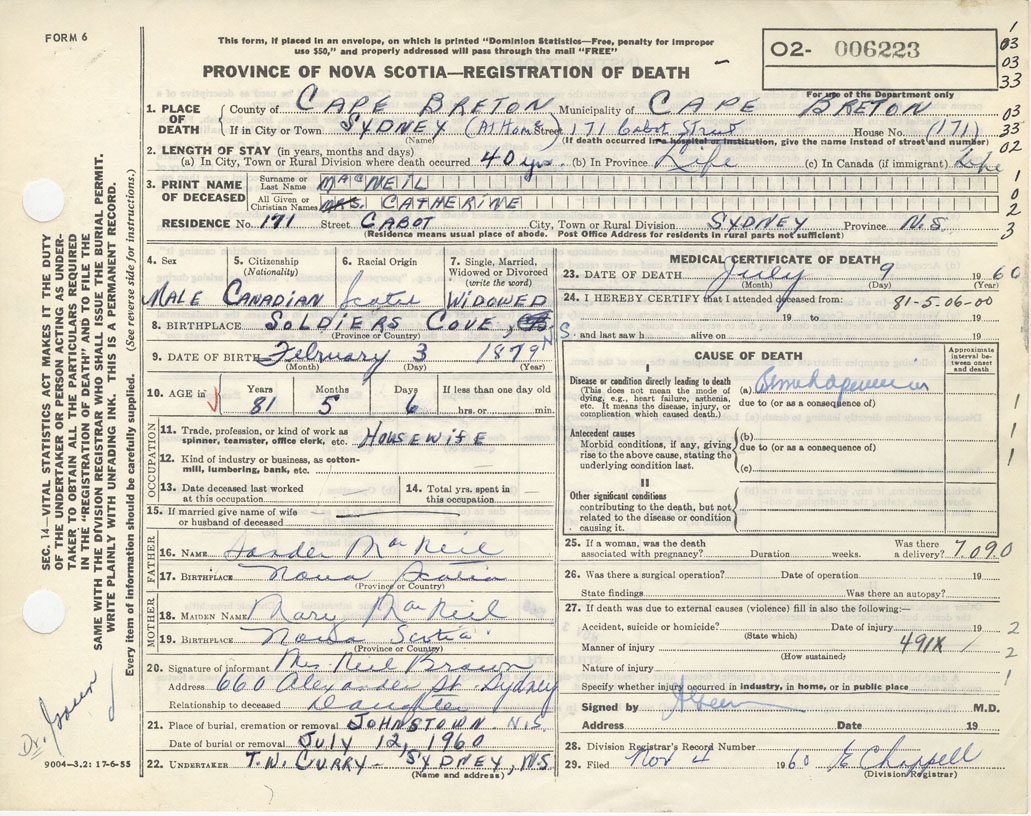 FORM 6
This form, if placed in an envelope, on which is printed "Dominion Statistics—Free, penalty for improper
use $50," and properly addressed will pass through the mail "FREE"
PROVINCE OF NOVA SCOTIA—REGISTRATION OF DEATH
02- 006223
For use of the Department only
1
03
03
33
03
33
02
1
0
2
3
1. PLACE OF DEATH
County of CAPE BRETON Municipality of CAPE BRETON
If in City or Town SYDNEY (At Home) Street 171 Cabot Street House No. (171)
(Name) (If death occurred in a hospital or institution, give the name instead of street and number)
2. LENGTH OF STAY (in years, months and days)
(a) In City, Town or Rural Division where death occurred 40 yrs. (b) In Province Life (c) In Canada (if immigrant) Life
3. PRINT NAME OF DECEASED
Surname or Last Name MacNEIL
All Given or Christian Names MRS. CATHERINE
RESIDENCE No. 171 Street CABOT City, Town or Rural Division SYDNEY Province N.S.
(Residence means usual place of abode. Post Office Address for residents in rural parts not sufficient)
4. Sex 5. Citizenship (Nationality) 6. Racial Origin 7. Single, Married, Widowed or Divorced (write the word)
MALE CANADIAN WIDOWED
8. BIRTHPLACE SOLDIERS COVE, N.S.
(Province or Country)
9. DATE OF BIRTH February 3 1879
(Month) (Day) (Year)
10. AGE in Years Months Days If less than one day old
81 5 6 hrs. or min.
OCCUPATION
11. Trade, profession, or kind of work as spinner, teamster, office clerk, etc. HOUSEWIFE
12. Kind of industry or business, as cotton-mill, lumbering, bank, etc.
13. Date deceased last worked at this occupation.
14. Total yrs. spent in this occupation.
15. If married give name of wife or husband of deceased
FATHER
16. NAME Sander MacNeil
17. BIRTHPLACE Nova Scotia
(Province or Country)
MOTHER
18. MAIDEN NAME Mary MacNeil
19. BIRTHPLACE Nova Scotia
(Province or Country)
20. Signature of informant Mrs. Neil Brown
Address 660 Alexander St Sydney
Relationship to deceased Daughter
21. Place of burial, cremation or removal JOHNSTOWN N.S.
Date of burial or removal JULY 12, 1960
22. UNDERTAKER T.W. CURRY - SYDNEY, N.S.
(Name and address)
MEDICAL CERTIFICATE OF DEATH
23. DATE OF DEATH July 9 1960
(Month) (Day) (Year)
24. I HEREBY CERTIFY that I attended deceased from: 81-5.06-00
19 to 19
and last saw h alive on 19
CAUSE OF DEATH
Approximate interval between onset and death
I
Disease or condition directly leading to death
(This does not mean the mode of dying, e.g., heart failure, asthenia, etc. It means the disease, injury, or complication which caused death.)
(a)
due to (or as a consequence of)
Antecedent causes
Morbid conditions, if any, giving rise to the above cause, stating the underlying condition last.
(b)
due to (or as a consequence of)
(c)
II
Other significant conditions
contributing to the death, but not related to the disease or condition causing it.
1
1
1
25. If a woman, was the death associated with pregnancy? Duration weeks. Was there a delivery? 7090
26. Was there a surgical operation? Date of operation 19
State findings Was there an autopsy?
27. If death was due to external causes (violence) fill in also the following:—
Accident, suicide or homicide? Date of injury 19
(State which)
Manner of injury 491X
(How sustained?)
Nature of injury
Specify whether injury occurred in industry, in home, or in public place
2
2
1
Signed by M.D.
Address Date 19
28. Division Registrar's Record Number
29. Filed Nov 4 1960 E Chappell
(Division Registrar)
SEC. 14—VITAL STATISTICS ACT MAKES IT THE DUTY
OF THE UNDERTAKER OR PERSON ACTING AS UNDER-
TAKER TO OBTAIN ALL THE PARTICULARS REQUIRED
IN THE "REGISTRATION OF DEATH" AND TO FILE THE
SAME WITH THE DIVISION REGISTRAR WHO SHALL ISSUE THE BURIAL PERMIT.
WRITE PLAINLY WITH UNFADING INK. THIS IS A PERMANENT RECORD.
Every item of information should be carefully supplied. (See reverse side for instructions.)
Dr.
9004—3,2: 17-6-55